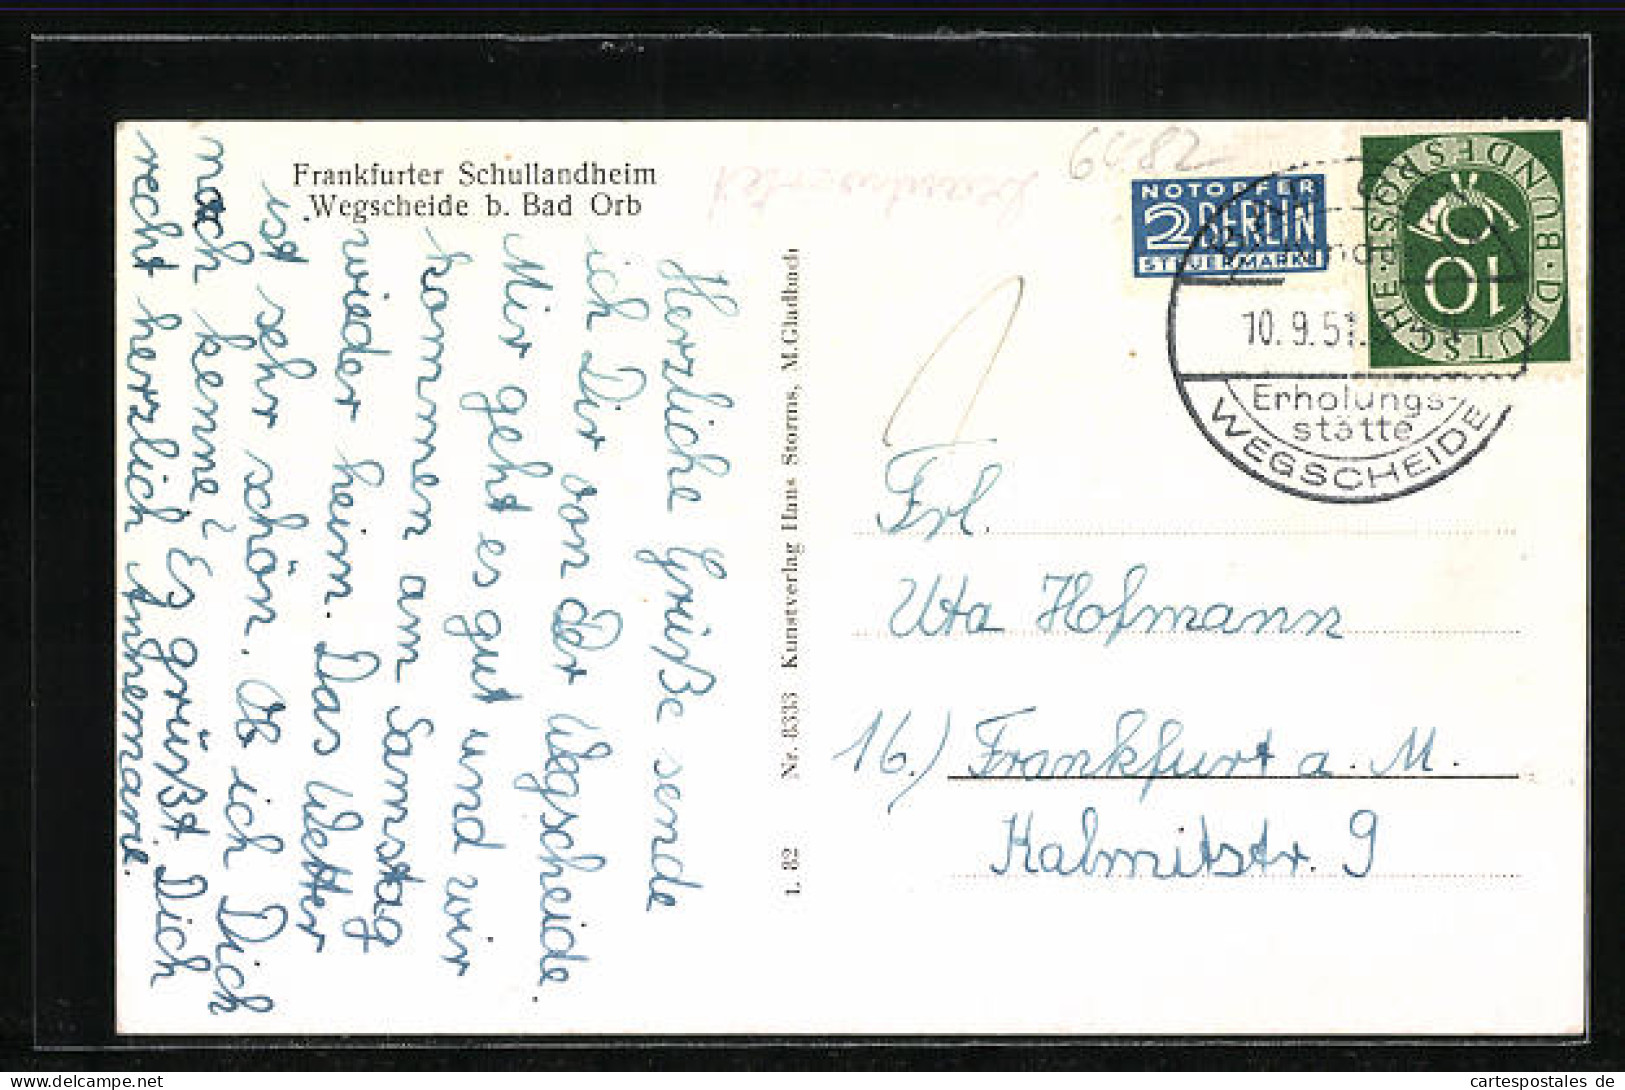 Frankfurter Schullandheim
Wegscheide b. Bad Orb
Herzliche Grüße sende
ich Dir von der Wegscheide.
Mir geht es gut und wir
kommen am Samstag
wieder heim. Das Wetter
ist sehr schön. Ob ich Dich
noch kenne? Es grüßt Dich
recht herzlich Annemarie.
L 82 Nr. 8333 Kunstverlag Hans Storms, M.Gladbach
6482
NOTOPFER
2 BERLIN
STEUERMARKE
DEUTSCHE BUNDESPOST
10
10.9.51
Erholungs-
stätte
WEGSCHEIDE
Frl.
Uta Hofmann
16.) Frankfurt a. M.
Kalmitstr. 9
cartespostales de